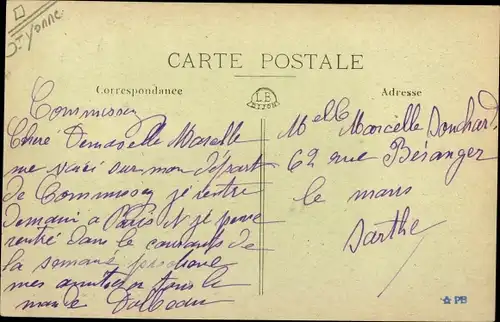 Yonne
CARTE POSTALE
Correspondance
LB
DIJON
Adresse
Commissey
Chere Demaselle Marselle
me voici sur mon départ
de Commissey je rentre
demain a Paris
rentré dans le courants de
la semané prochaine
mes amities a tous le
monde
Melle Marcelle Bouchard
62 rue Béranger
le mans
Sarthe
PB